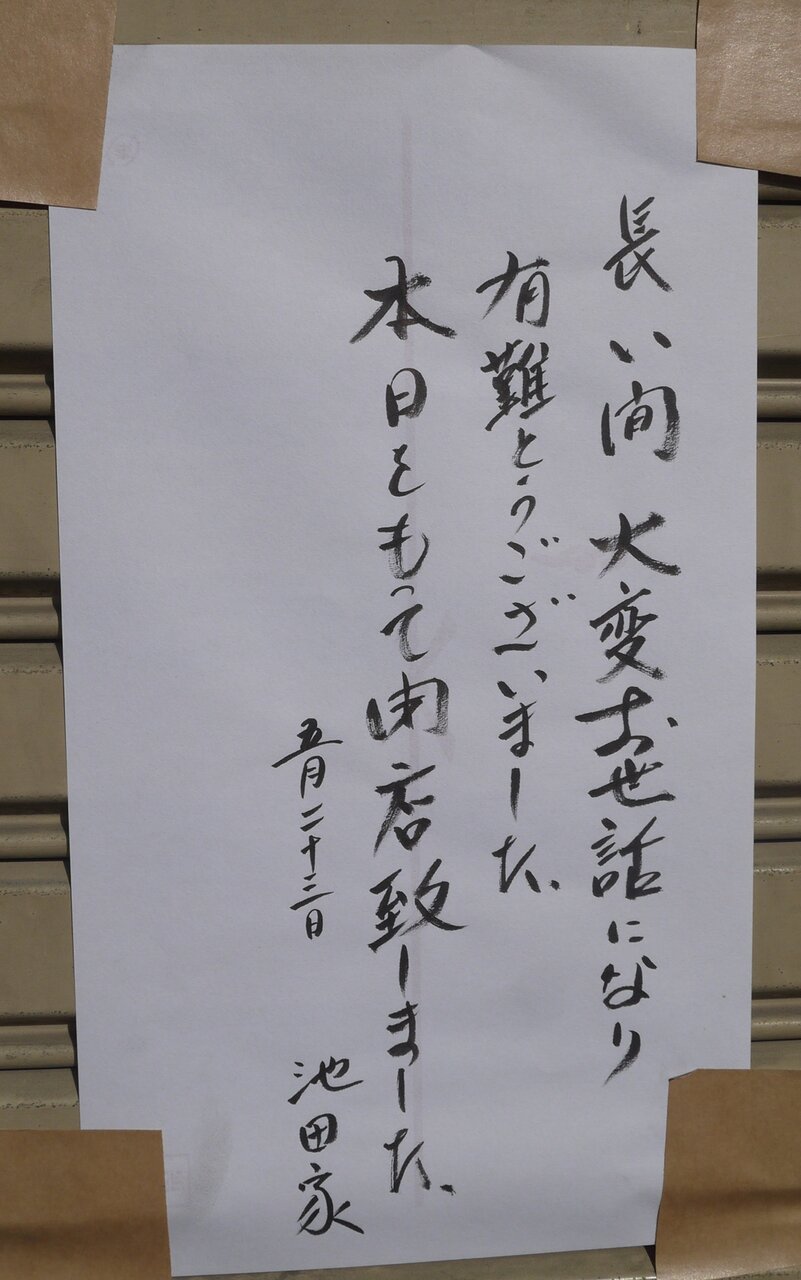 長い間 大変お世話になり
有難とうございました、
本日をもって閉店致しました、
五月二十三日
池田家